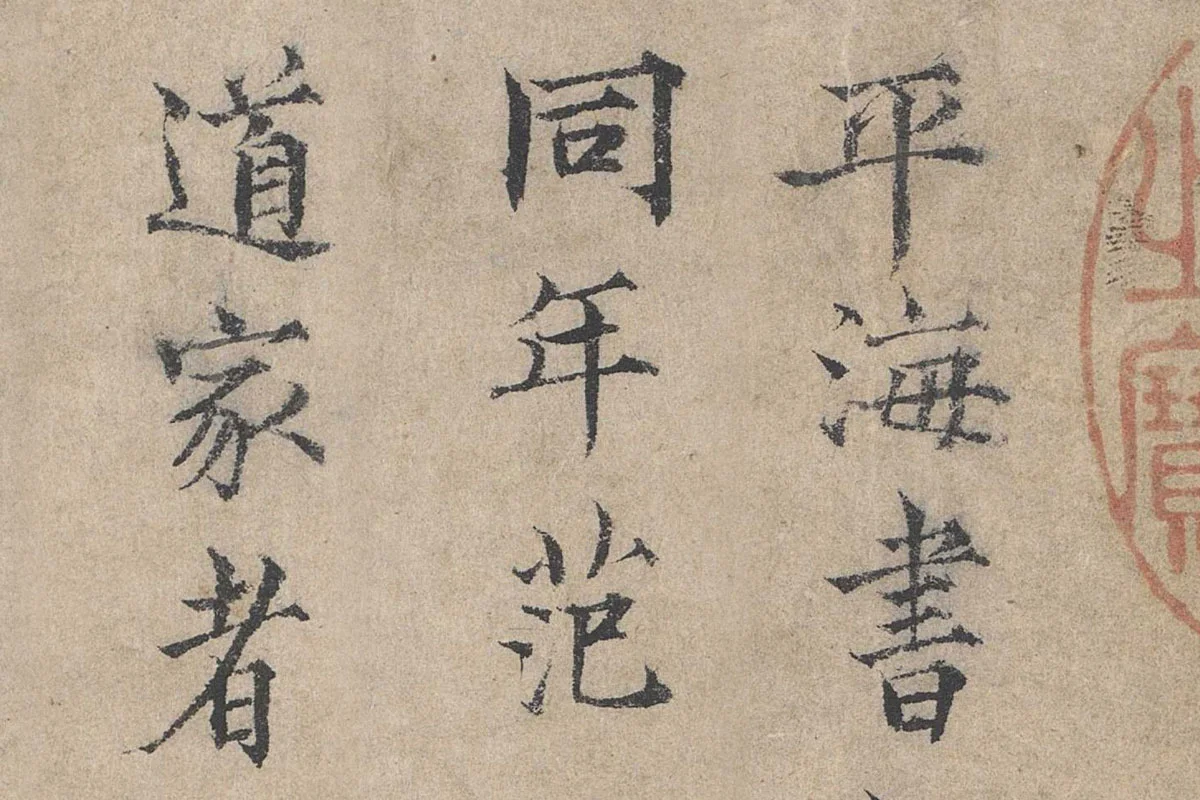 平海書
同年范
道家者